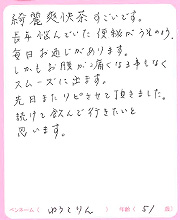 綺麗爽快茶すごいです。
長年悩んでいた便秘がうそのよう、
毎日お通じがあります。
しかもお腹が痛くなる事もなく
スムーズに出ます。
先日またリピさせて頂きました。
続けて飲んで行きたいと
思います。
ペンネーム（ ゆうこりん ） 年齢（ 51 歳）